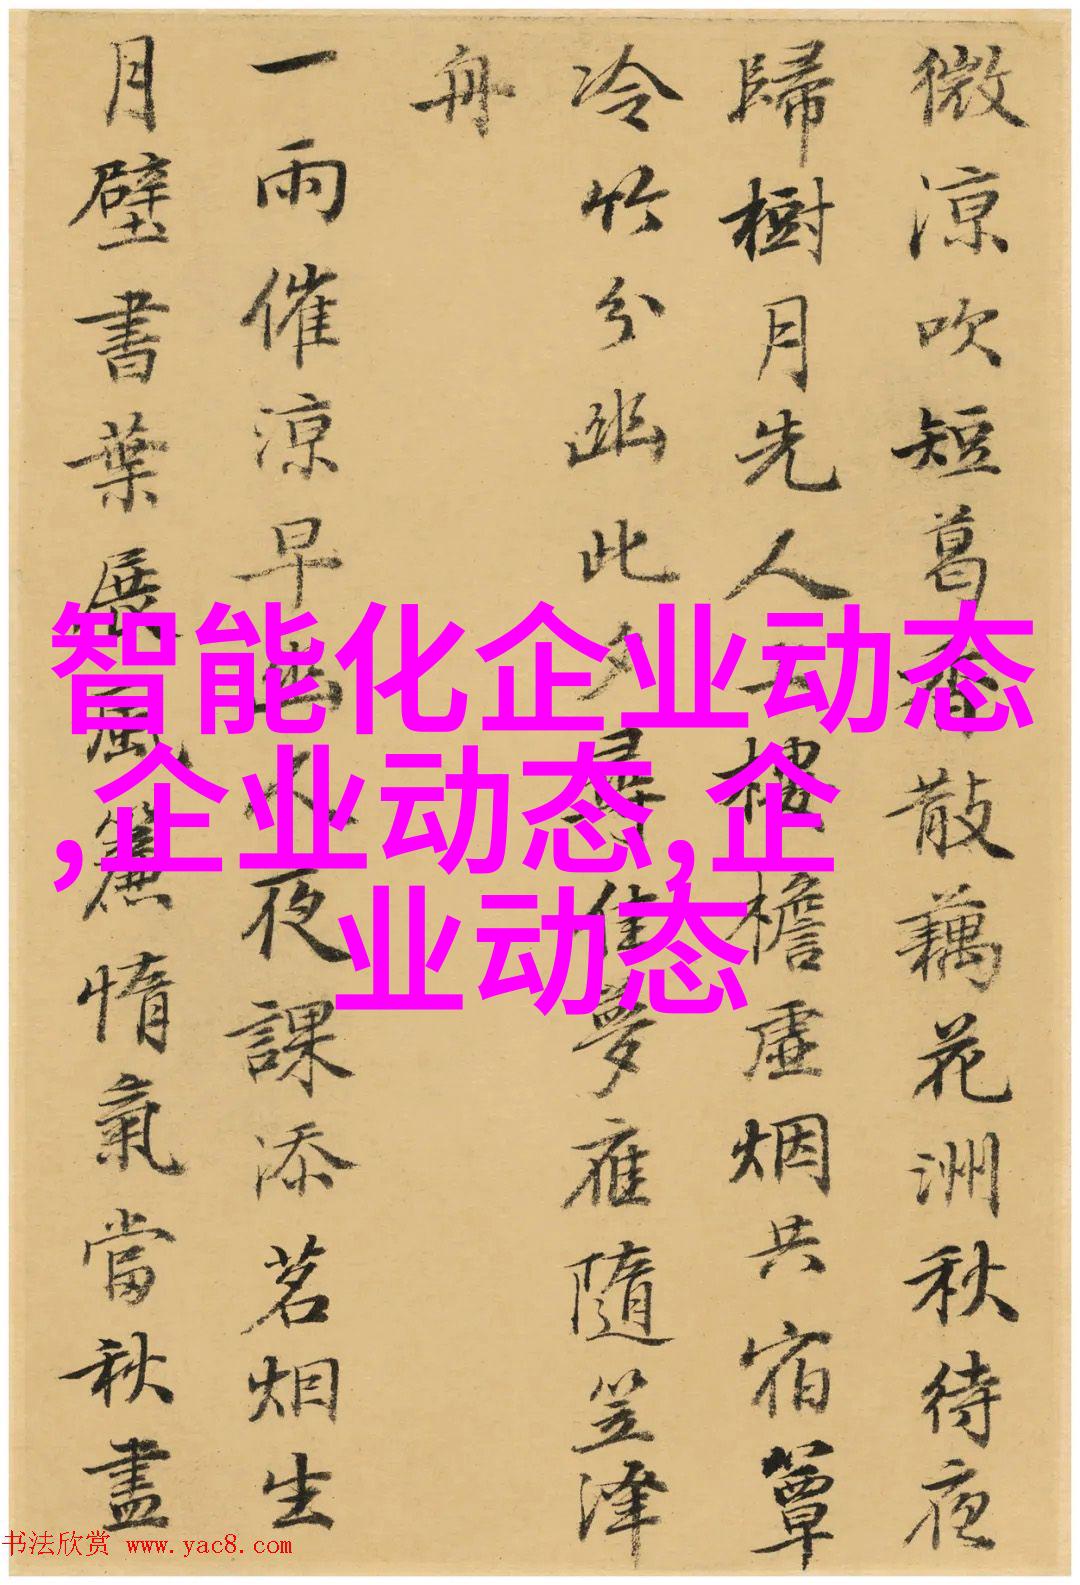 微涼吹短葛香散藕花洲秋待夜
歸樹月先人樓檐虛烟共宿簟
冷竹分幽此夕尋佳夢雁隨笠澤
舟
一雨催涼早幽夜課添茗烟生
月壁書葉展風簾惰氣當秋盡
智能化企业动态
,企业动态,企
业动态
书法欣赏 www.yac8.com